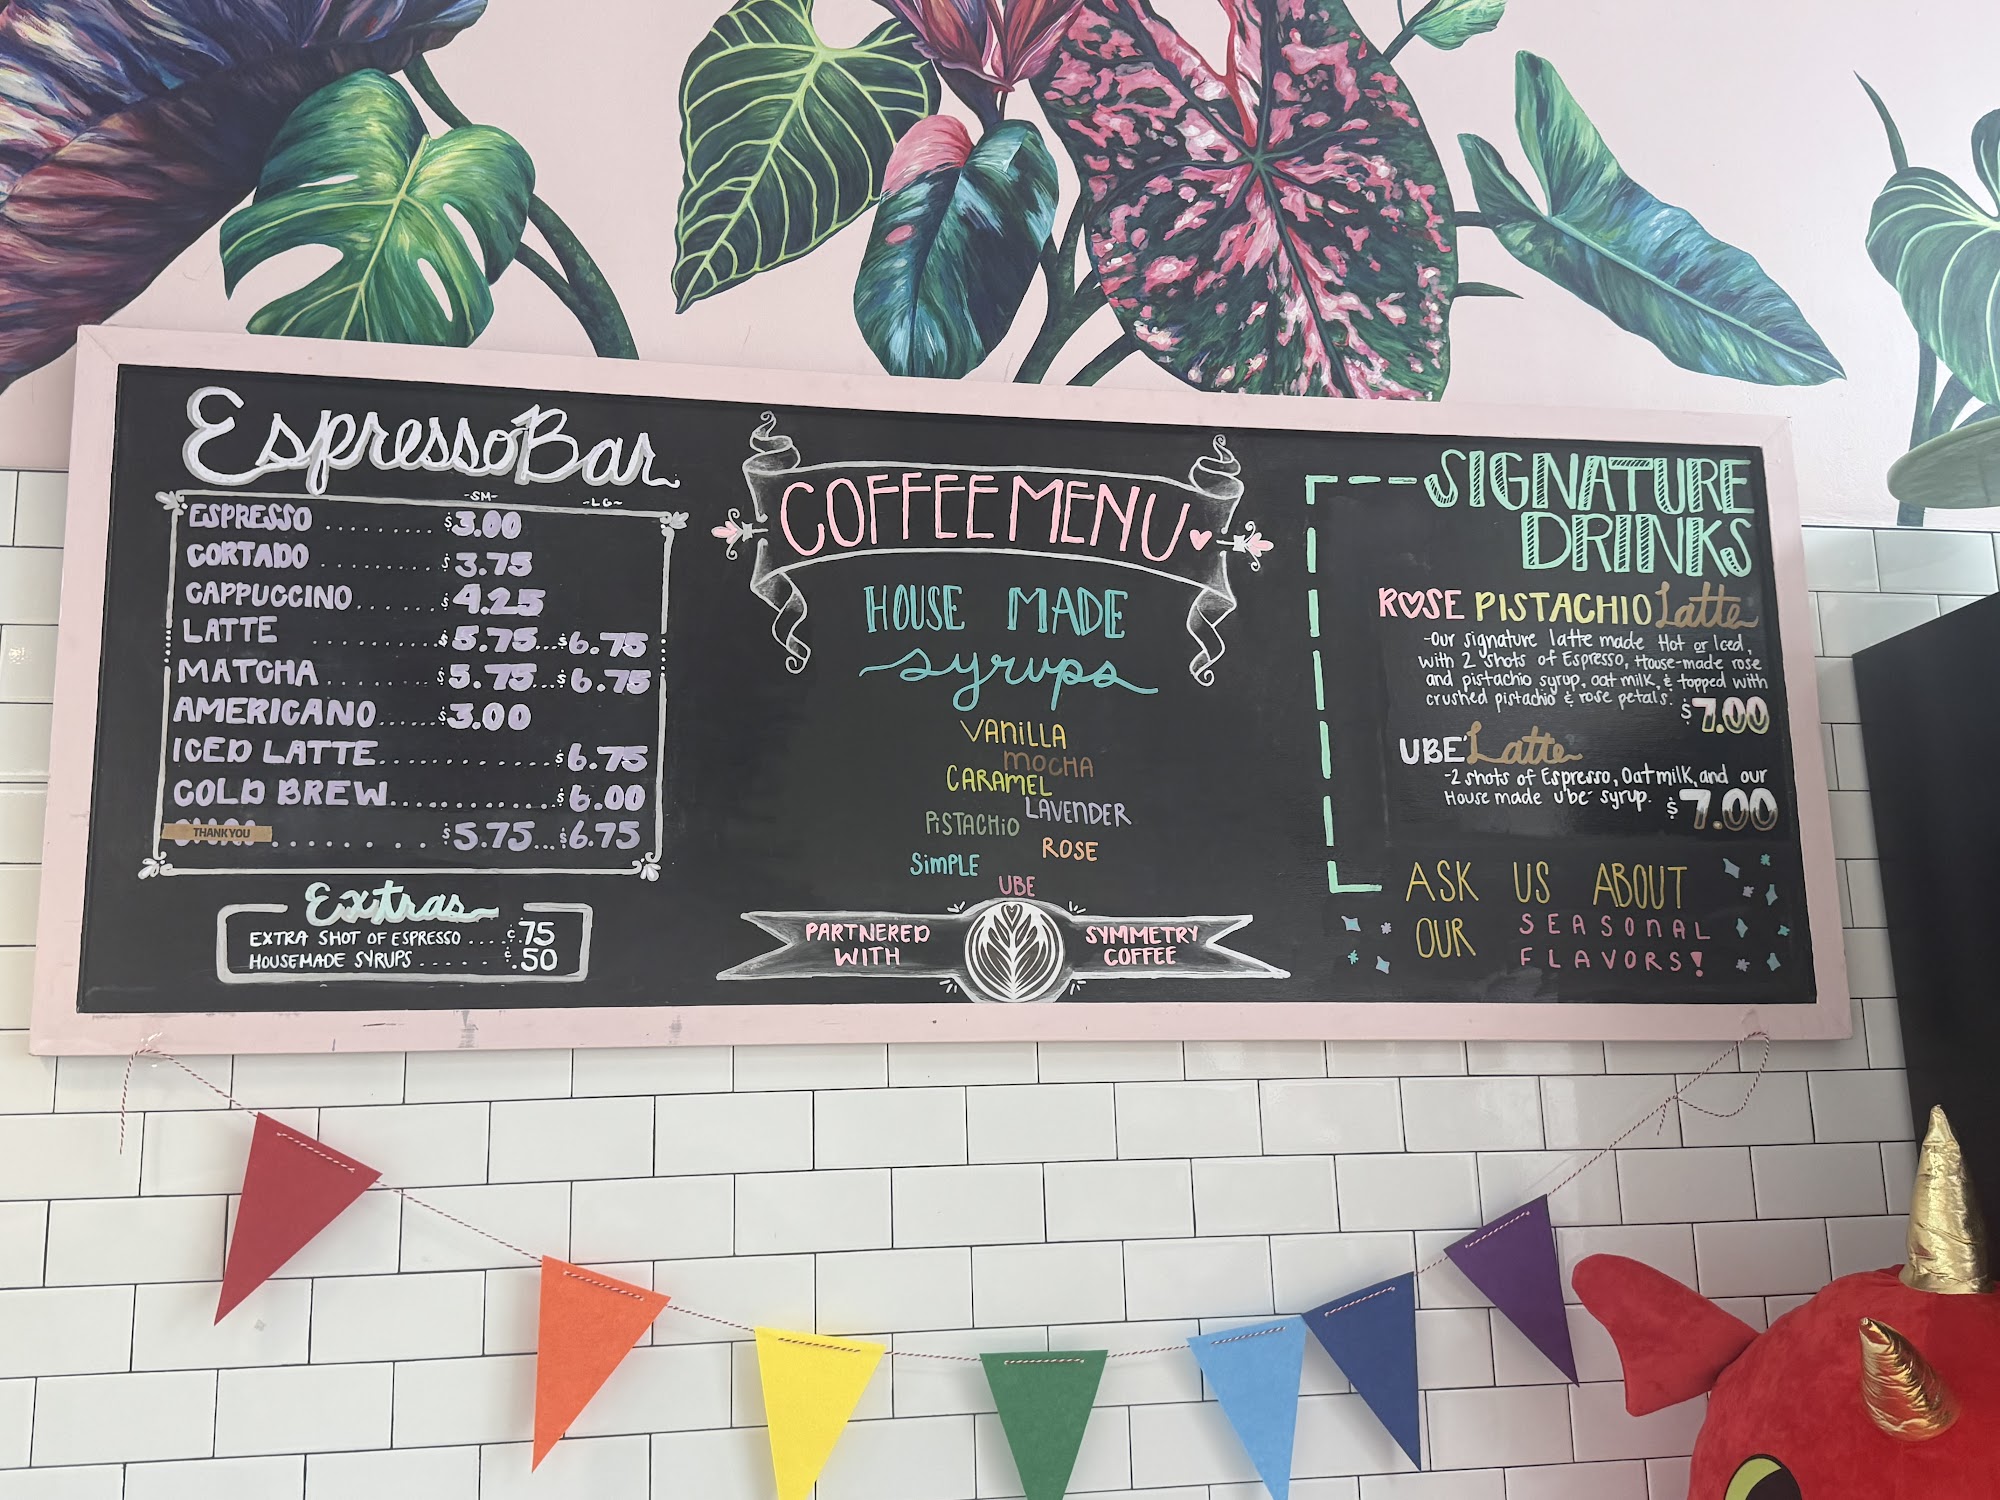 Espresso Bar
-SM- -LG-
ESPRESSO ....... $3.00
CORTADO ......... $3.75
CAPPUCCINO...... $4.25
LATTE ....... $5.75...$6.75
MATCHA........ $5.75...$6.75
AMERICANO..... $3.00
ICED LATTE............ $6.75
COLD BREW............ $6.00
THANK YOU ........ $5.75...$6.75
Extras
EXTRA SHOT OF ESPRESSO .... ¢.75
HOUSEMADE SYRUPS ..... ¢.50
COFFEE MENU
HOUSE MADE
syrups
VANILLA
MOCHA
CARAMEL
LAVENDER
PISTACHIO
ROSE
SIMPLE
UBE
PARTNERED
WITH
SYMMETRY
COFFEE
SIGNATURE
DRINKS
ROSE PISTACHIO Latte
-Our signature latte made Hot or Iced,
with 2 shots of Espresso, House-made rose
and pistachio syrup, oat milk, & topped with
crushed pistachio & rose petals. $7.00
UBE Latte
-2 shots of Espresso, Oatmilk, and our
House made ube syrup. $7.00
ASK US ABOUT
OUR SEASONAL
FLAVORS!